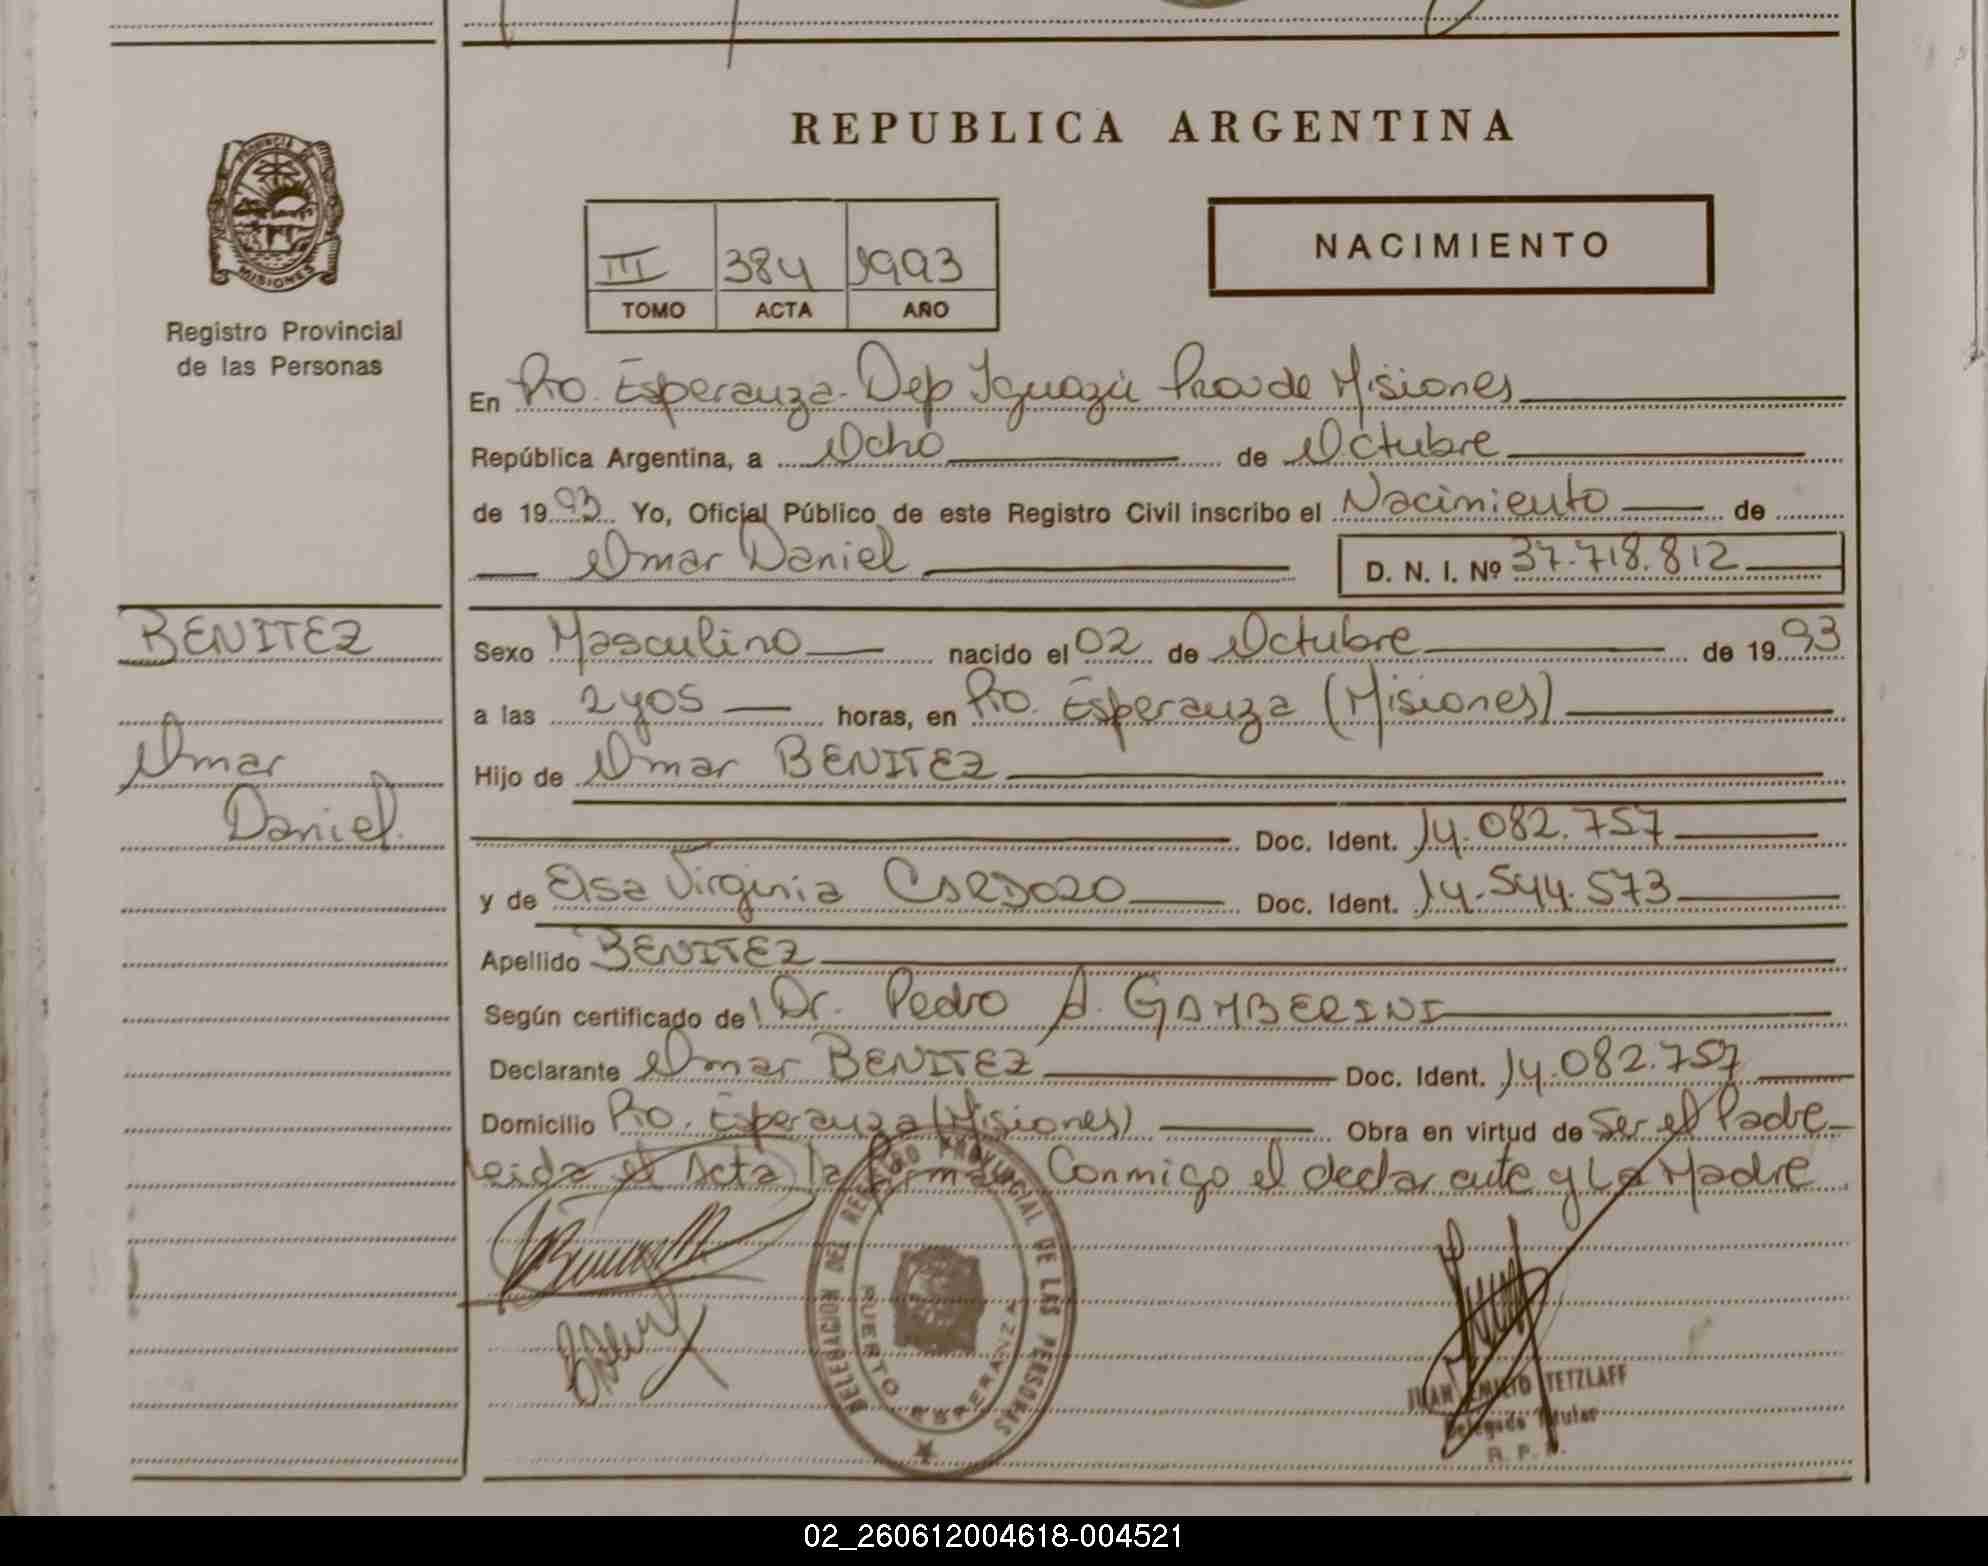 REPUBLICA ARGENTINA
PROVINCIA DE
MISIONES
Registro Provincial
de las Personas
III 384 1993
TOMO ACTA AÑO
NACIMIENTO
En Pto. Esperanza - Dep Iguazú Prov de Misiones
República Argentina, a Ocho de Octubre
de 1993. Yo, Oficial Público de este Registro Civil inscribo el Nacimiento de
Omar Daniel D. N. I. Nº 37.718.812
BENITEZ
Omar
Daniel.
Sexo Masculino nacido el 02 de Octubre de 1993
a las 2y05 horas, en Pto. Esperanza (Misiones)
Hijo de Omar BENITEZ
Doc. Ident. 14.082.757
y de Elsa Virginia CARDOZO Doc. Ident. 14.544.573
Apellido BENITEZ
Según certificado del Dr. Pedro A. GAMBERINI
Declarante Omar BENITEZ Doc. Ident. 14.082.757
Domicilio Pto. Esperanza (Misiones) Obra en virtud de Ser el Padre
Leida el Acta la firman Conmigo el declarante y La Madre
DELEGACION DEL REGISTRO PROVINCIAL DE LAS PERSONAS
PUERTO ESPERANZA
JUAN EMILIO TETZLAFF
Delegado Titular
R. P. P.
02_260612004618-004521